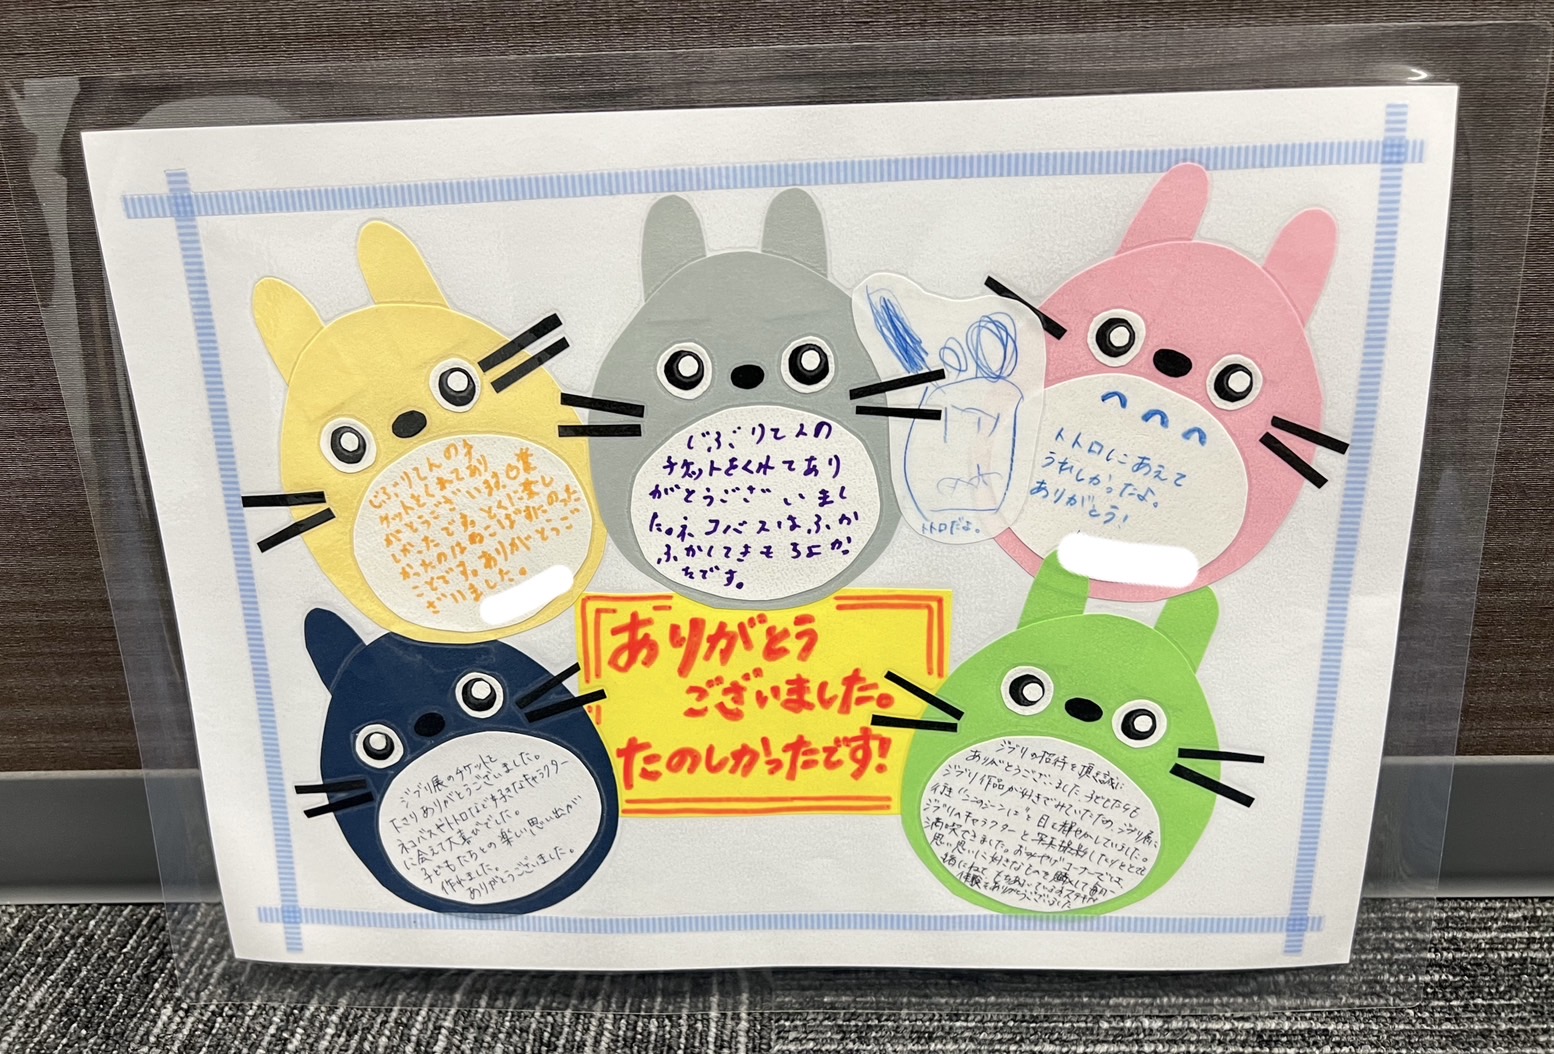 じぶりてんのチ
ケットをくれてあり
がとうございます。
しかったです。とくに楽し
かったのはねこばすにのった
ことです。ありがとうご
ざいました。
じぶりてんの
チケットをくれてあり
がとうござ いまし
た。ネコバスはふか
ふかしてきもちよか
たです。
トトロだよ。
トトロにあえて
うれしかったよ。
ありがとう!
ありがとう
ございました。
たのしかったです!
ジブリ展のチケットを
ありがとうございました。
ネコバスやトトロなど好きなキャラクター
に会えて大喜びでした。
子どもたちとの楽しい思い出が
作れました。
ありがとうございました。
ジブリの招待を頂き誠に
ありがとうございました。子どもたちも
ジブリ作品が好きでみていたため、ジブリ展に
行き 目を輝かしていました。
ジブリのキャラクターと写真撮影したりととても
満喫できました。おみやげコーナーでは
思い思いに好きなものを購入して
ありがとうございました